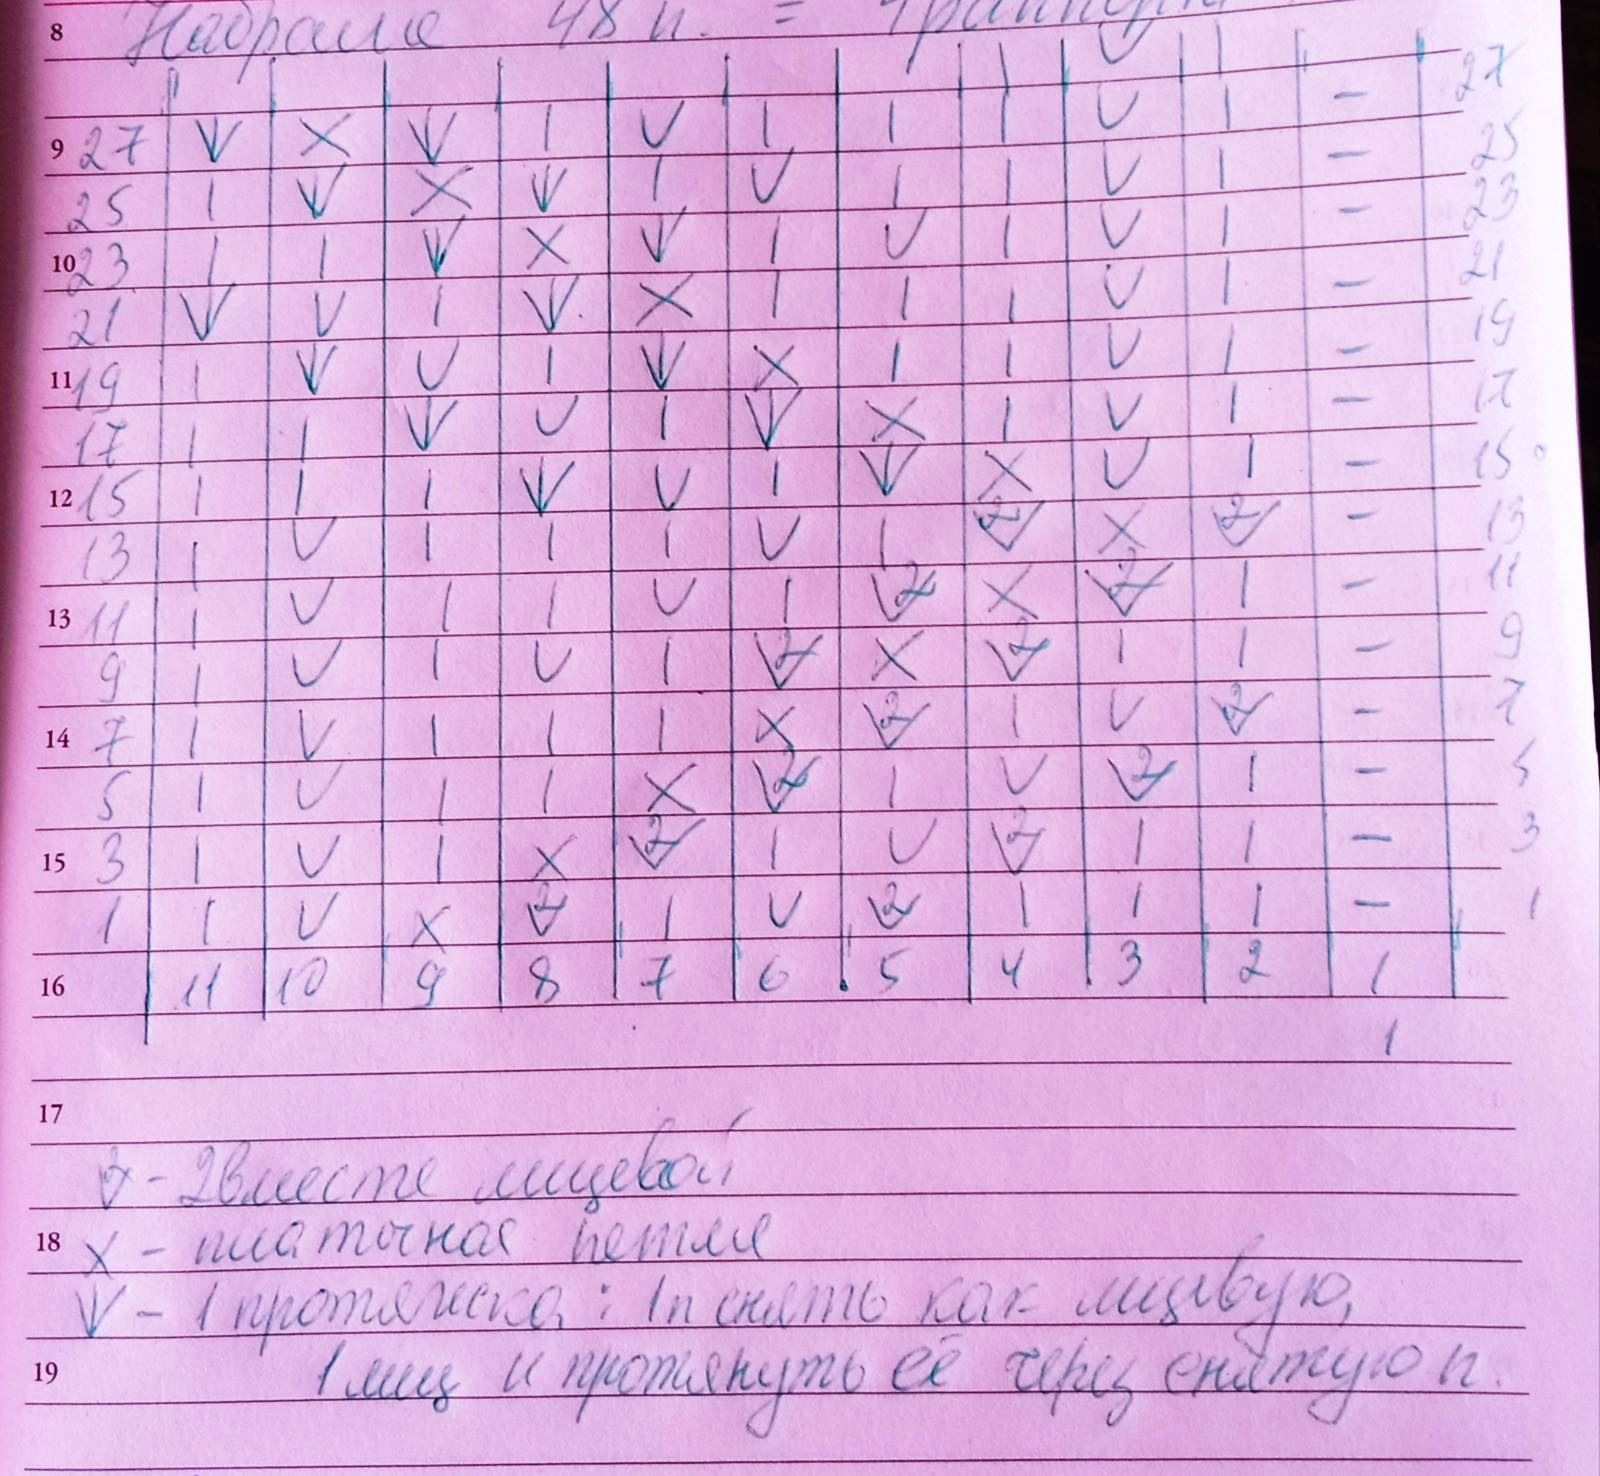 8 Набрала 48 п. =
27
9 27 V X V | V | | | V | -
25
25 | V X V | V | | V | -
23
10 23 | | V X V | V | V | -
21
21 V V | V X | | | V | -
19
11 19 | V V | V X | | V | -
17
17 | | V V | V X | V | -
15
12 15 | | | V V | V X V | -
13
13 | V | | | V | 2 X 2 -
11
13 11 | V | | V | 2 X 2 | -
9
9 | V | V | 2 X 2 | | -
7
14 7 | V | | | X 2 | V 2 -
5
5 | V | | X 2 | V 2 | -
3
15 3 | V | X 2 | V 2 | | -
1
1 | V X 2 | V 2 | | | -
16 11 10 9 8 7 6 5 4 3 2 1
1
17
2 - 2 вместе лицевой
18 X - платочная петля
V - 1 протяжка: 1п снять как лицевую,
19 1 лиц и протянуть её через снятую п.